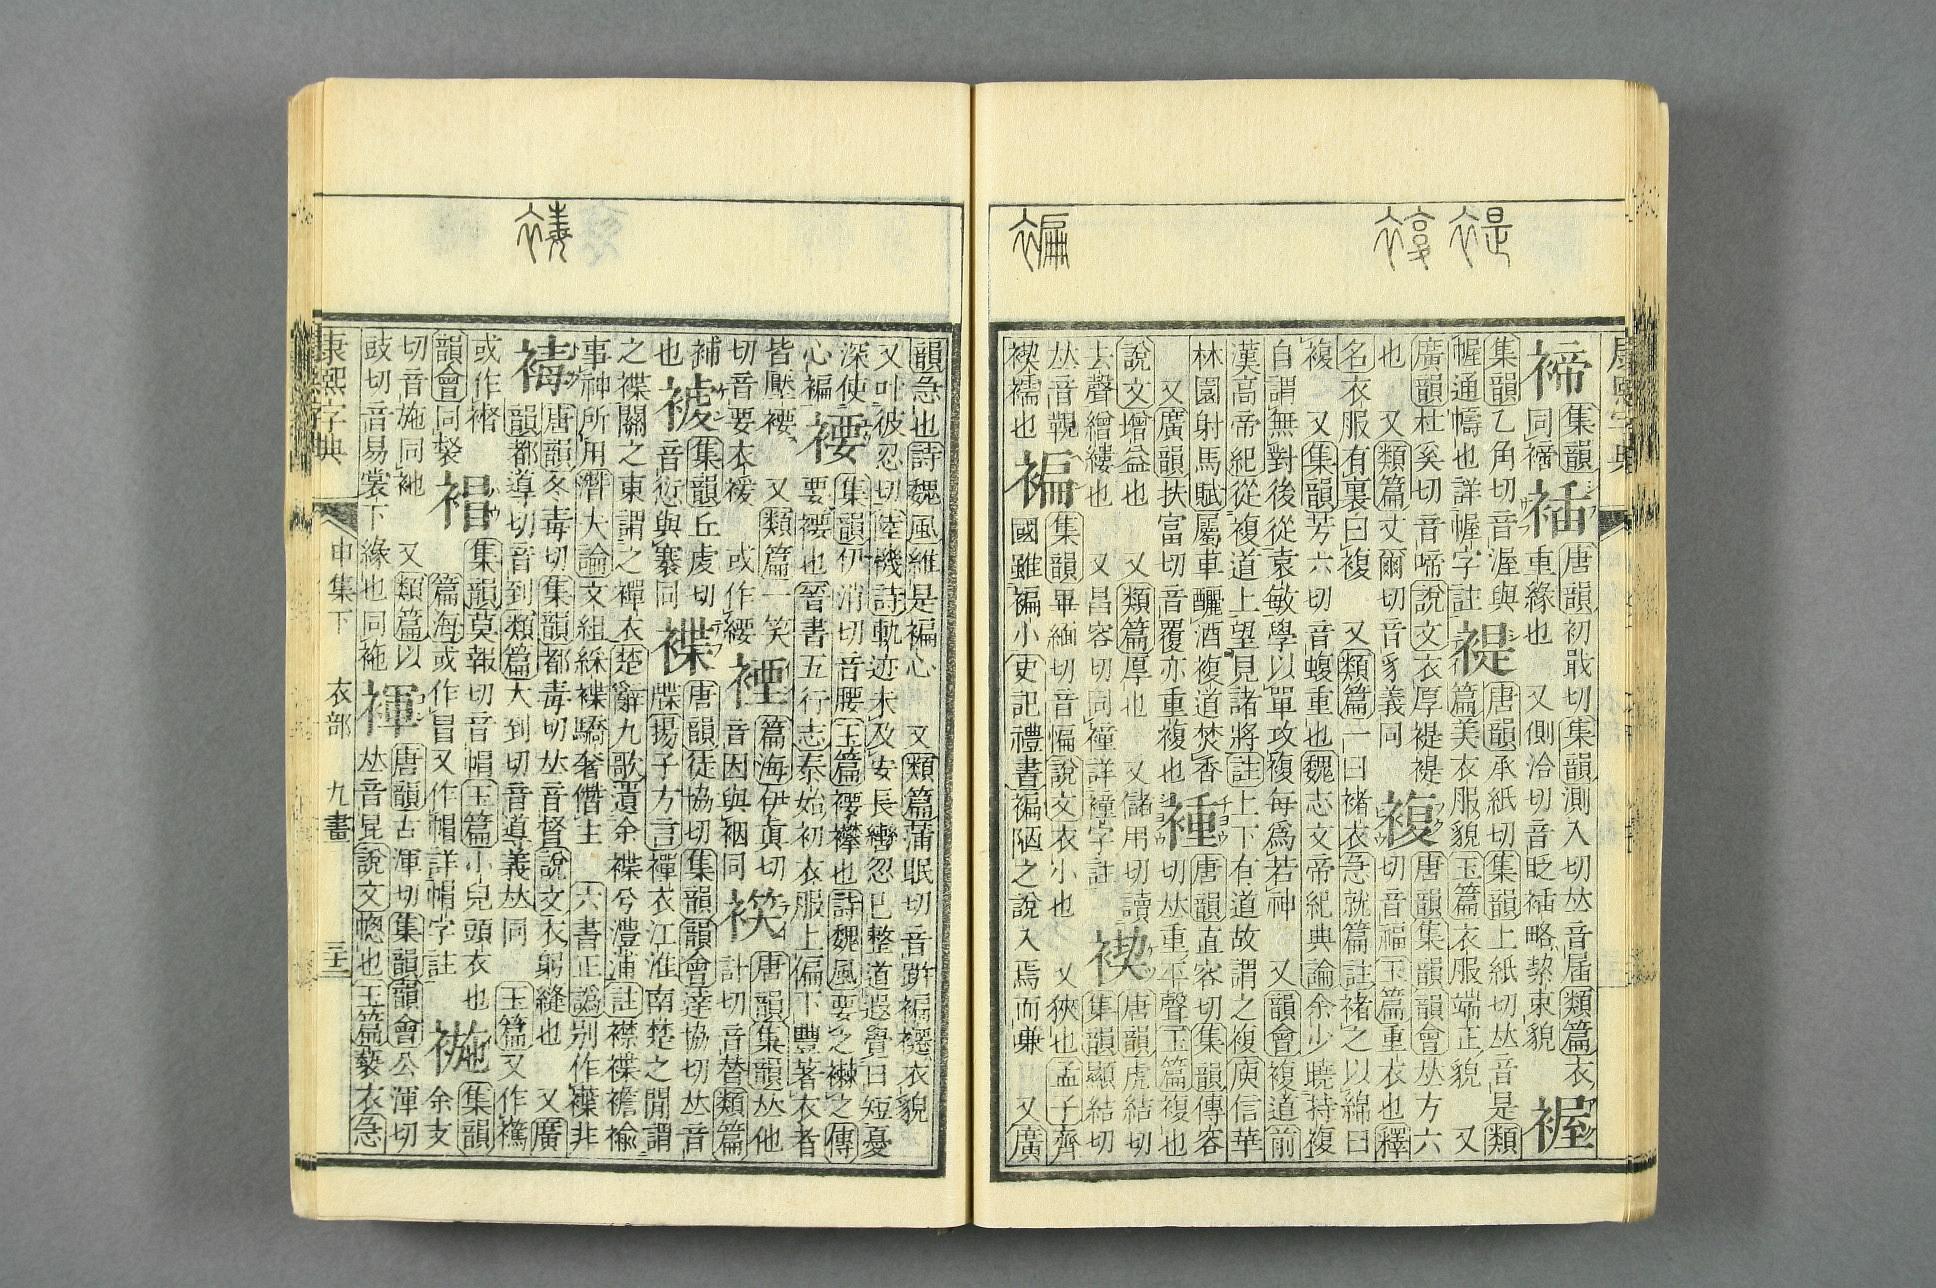 康熙字典
褅 集韻 䘒 唐韻初戢切集韻測入切𠀤音届類篇衣 幄
同禘 重緣也 又側洽切音眨䘒略絜束貌
集韻乙角切音渥與 褆 唐韻承紙切集韻上紙切𠀤音是類
幄通幬也詳幄字註 篇美衣服貌玉篇衣服端正貌 又
廣韻杜奚切音啼說文衣厚褆褆 複 唐韻集韻韻會𠀤方六
也 又類篇丈爾切音豸義同 切音福玉篇重衣也釋
名衣服有裏曰複 又類篇一曰褚衣急就篇註褚之以綿曰
複 又集韻芳六切音蝮重也魏志文帝紀典論余少曉持複
自謂無對後從袁敏學以單攻複每爲若神 又韻會複道前
漢高帝紀從複道上望見諸將註上下有道故謂之複庾信華
林園射馬賦屬車釃酒複道焚香 褈 唐韻直容切集韻傳容
又廣韻扶富切音覆亦重複也 切𠀤重平聲玉篇複也
說文增益也 又類篇厚也 又儲用切讀 褉 唐韻虎結切
去聲繒縷也 又昌容切同 詳 字註 集韻顯結切
𠀤音 褊 集韻畢緬切音惼說文衣小也 又狹也孟子齊
褉襦也 國雖褊小史記禮書褊陋之說入焉而嗛 又廣
韻急也詩魏風維是褊心 又類篇蒲眠切音跰褊褼衣貌
又叶彼忍切陸機詩軌迹未及安長轡忽已整道遐覺日短憂
深使 𧛔 集韻伊消切音腰玉篇𧛔襻也詩魏風要之襋之傳
心褊 要𧛔也晉書五行志泰始初衣服上 下豐著衣者
皆壓𧛔 又類篇一笑 禋 篇海伊眞切 唐韻集韻𠀤他
切音要衣 或作 音因與裀同 計切音替類篇
補 集韻丘虔切 褋 唐韻徒協切集韻韻會達協切𠀤音
也 音 與褰同 牒揚子方言襌衣江淮南楚之閒謂
之褋關之東謂之襌衣楚辭九歌遺余褋兮澧浦註襟褋襜褕
事神所用潛大論文組綵褋驕奢僭主 六書正譌别作 非
裯 唐韻冬毒切集韻都毒切𠀤音督說文衣躬縫也 又廣
韻都導切音到類篇大到切音導義𠀤同 玉篇又作
或作 集韻莫報切音帽玉篇小兒頭衣也 集韻
韻會同 篇海或作冒又作帽詳帽字註 余支
切音施同 又類篇以 褌 唐韻古渾切集韻韻會公渾切
豉切音易裳下緣也同 𠀤音昆說文幒也玉篇褻衣急
康熙字典 申集下 衣部 九畫